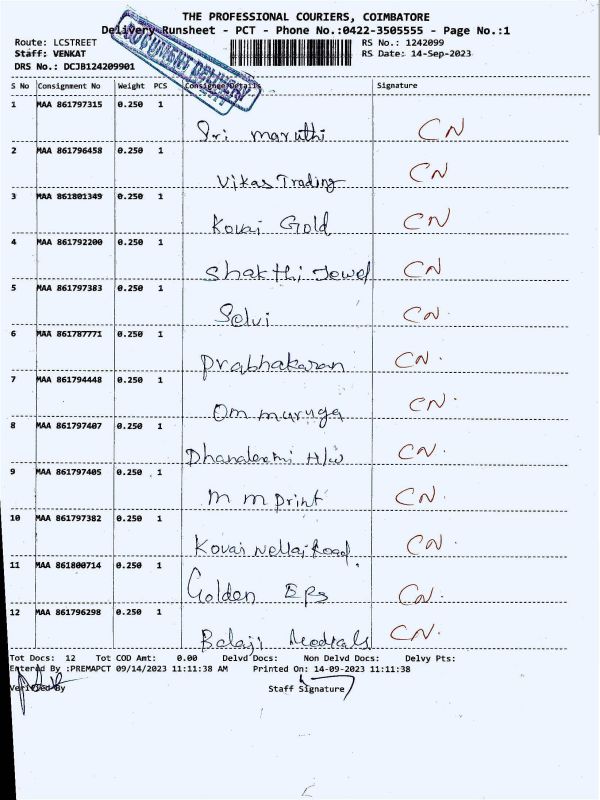 THE PROFESSIONAL COURIERS, COIMBATORE
Delivery Runsheet - PCT - Phone No.:0422-3505555 - Page No.:1
Route: LCSTREET RS No.: 1242099
Staff: VENKAT RS Date: 14-Sep-2023
DRS No.: DCJB124209901
DOCUMENT DELIVERY
S No Consignment No Weight PCS Consignee Details Signature
1 MAA 861797315 0.250 1
Sri maruthi CN
2 MAA 861796458 0.250 1
Vikas Trading CN
3 MAA 861801349 0.250 1
Kovai Gold CN
4 MAA 861792200 0.250 1
Shakthi Jewel CN
5 MAA 861797383 0.250 1
Selvi CN.
6 MAA 861787771 0.250 1
Prabhakaran CN.
7 MAA 861794448 0.250 1
Om muruga CN.
8 MAA 861797407 0.250 1
Dhanalaxmi H/w CN.
9 MAA 861797405 0.250 1
m m print CN.
10 MAA 861797382 0.250 1
Kovai Nellai Road. CN.
11 MAA 861800714 0.250 1
Golden CN.
12 MAA 861796298 0.250 1
Balaji CN.
Tot Docs: 12 Tot COD Amt: 0.00 Delvd Docs: Non Delvd Docs: Delvy Pts:
Entered By :PREMAPCT 09/14/2023 11:11:38 AM Printed On: 14-09-2023 11:11:38
Verified By Staff Signature